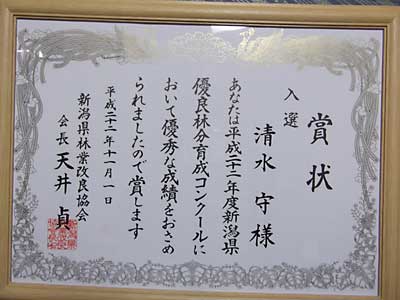 賞状
入選
清水守様
あなたは平成二十二年度新潟県
優良林分育成コンクールに
おいて優秀な成績をおさめ
られましたので賞します
平成二十二年十一月一日
新潟県林業改良協会
会長 天井貞